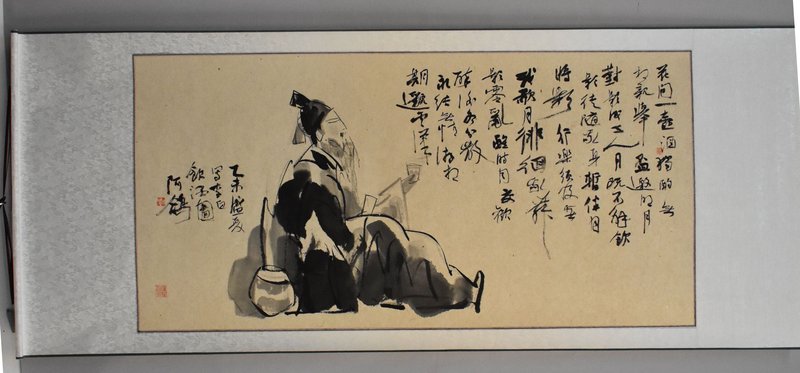 花間一壺酒獨酌無
相親舉盃邀明月
對影成三人月既不解飲
影徒隨我身暫伴月
將影行樂須及春
我歌月徘徊我舞
影零亂醒時同交歡
醉後各分散
永結無情游相
期邈雲漢
乙未盛夏
寫李白
飲酒圖
阿